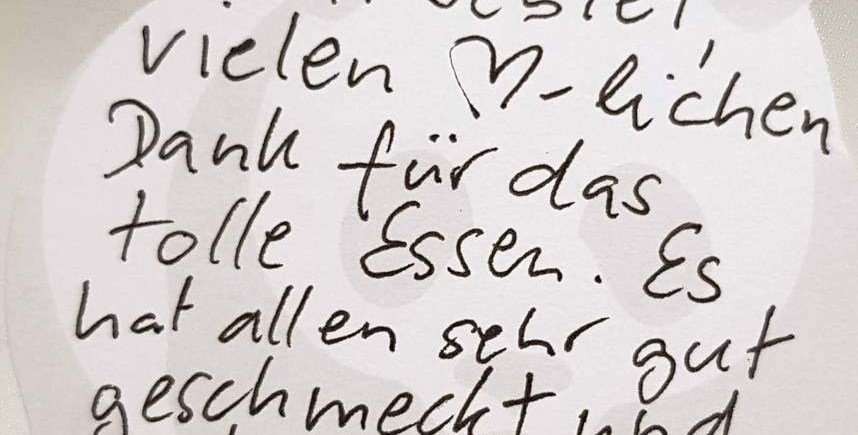 vielen ♡-lichen
Dank für das
tolle Essen. Es
hat allen sehr gut
geschmeckt und